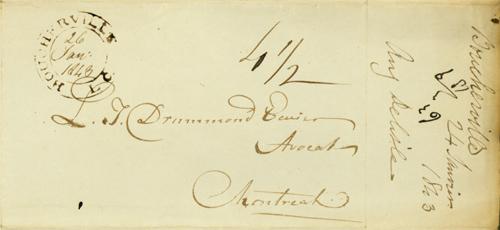 BOUCHERVILLE
26
Jan.
1843
4 1/2
L. T. Drummond Ecuier
Avocat
Montreal
Boucherville
24 Janvier 1843
Aug Delisle